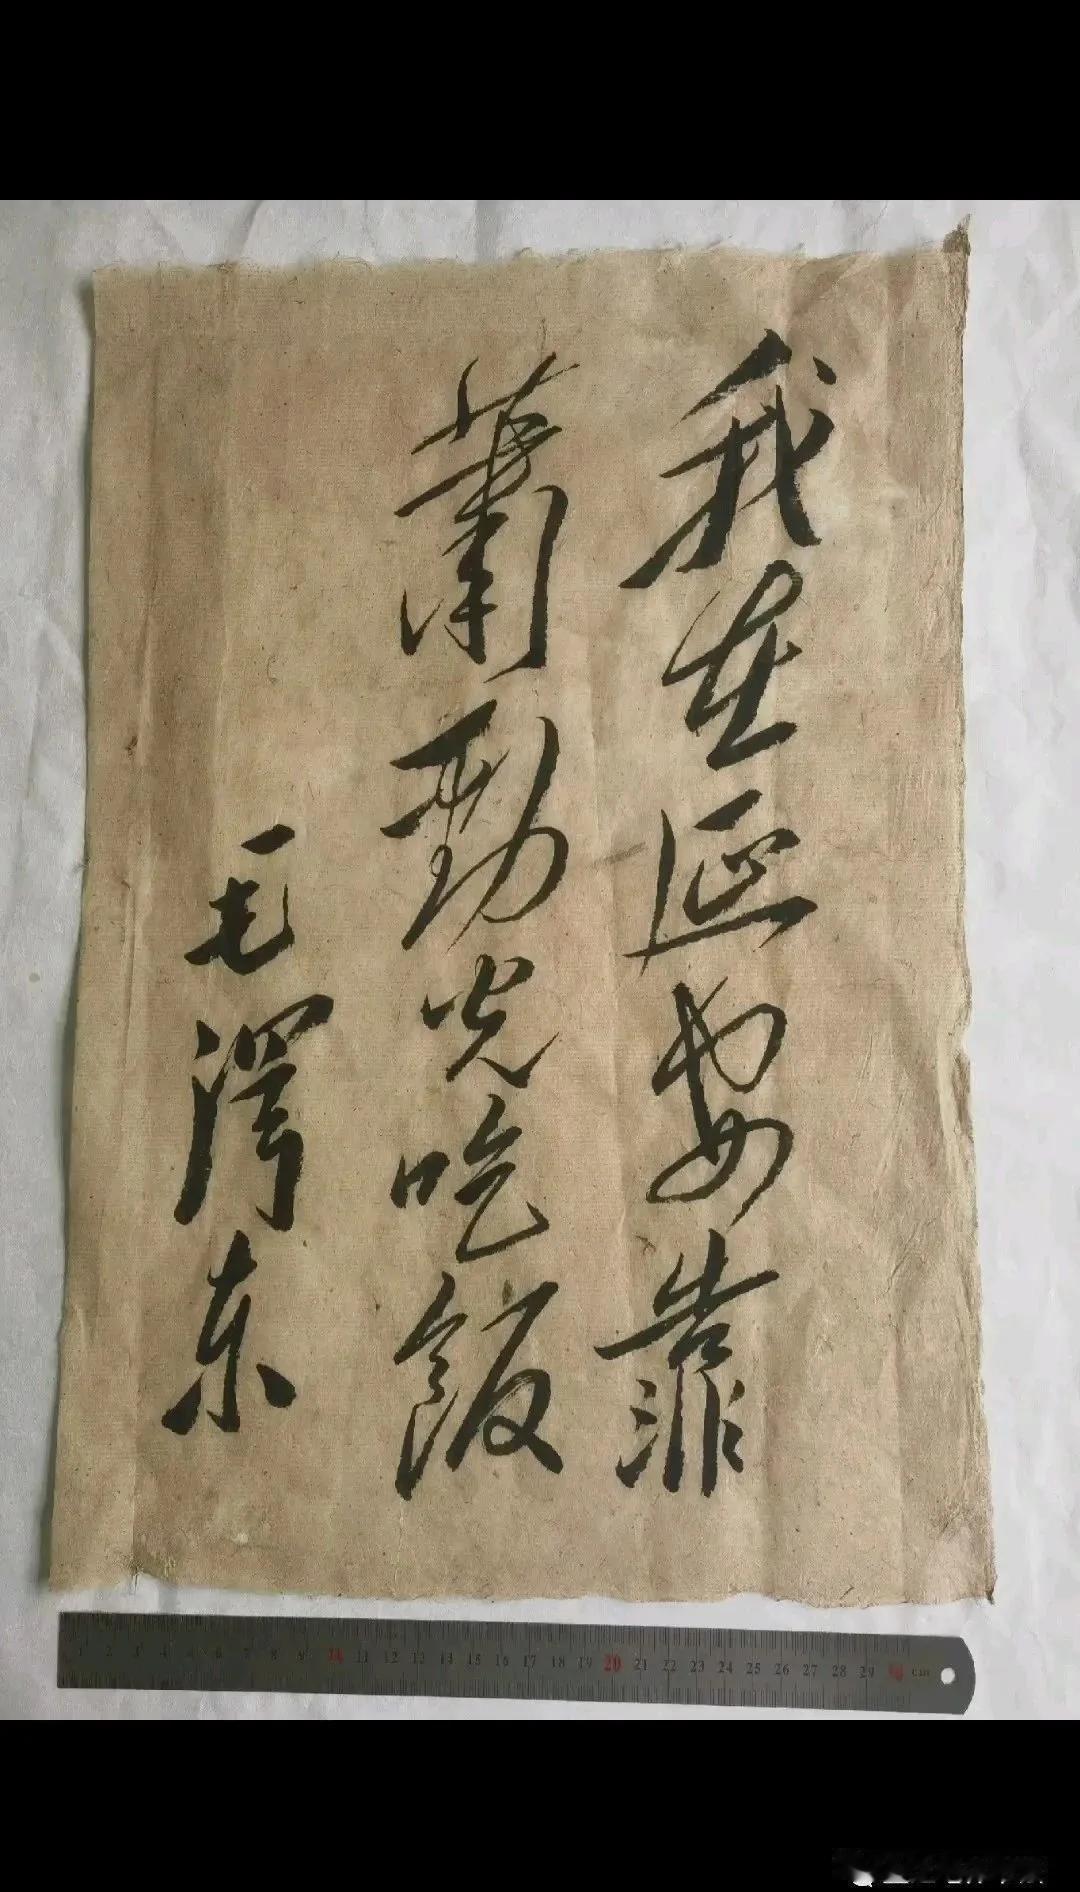 我在延安靠
萧劲光吃饭
毛泽东
1 2 3 4 5 6 7 8 9 11 12 13 14 15 16 17 18 19 20 21 22 23 24 25 26 27 28 29 cm